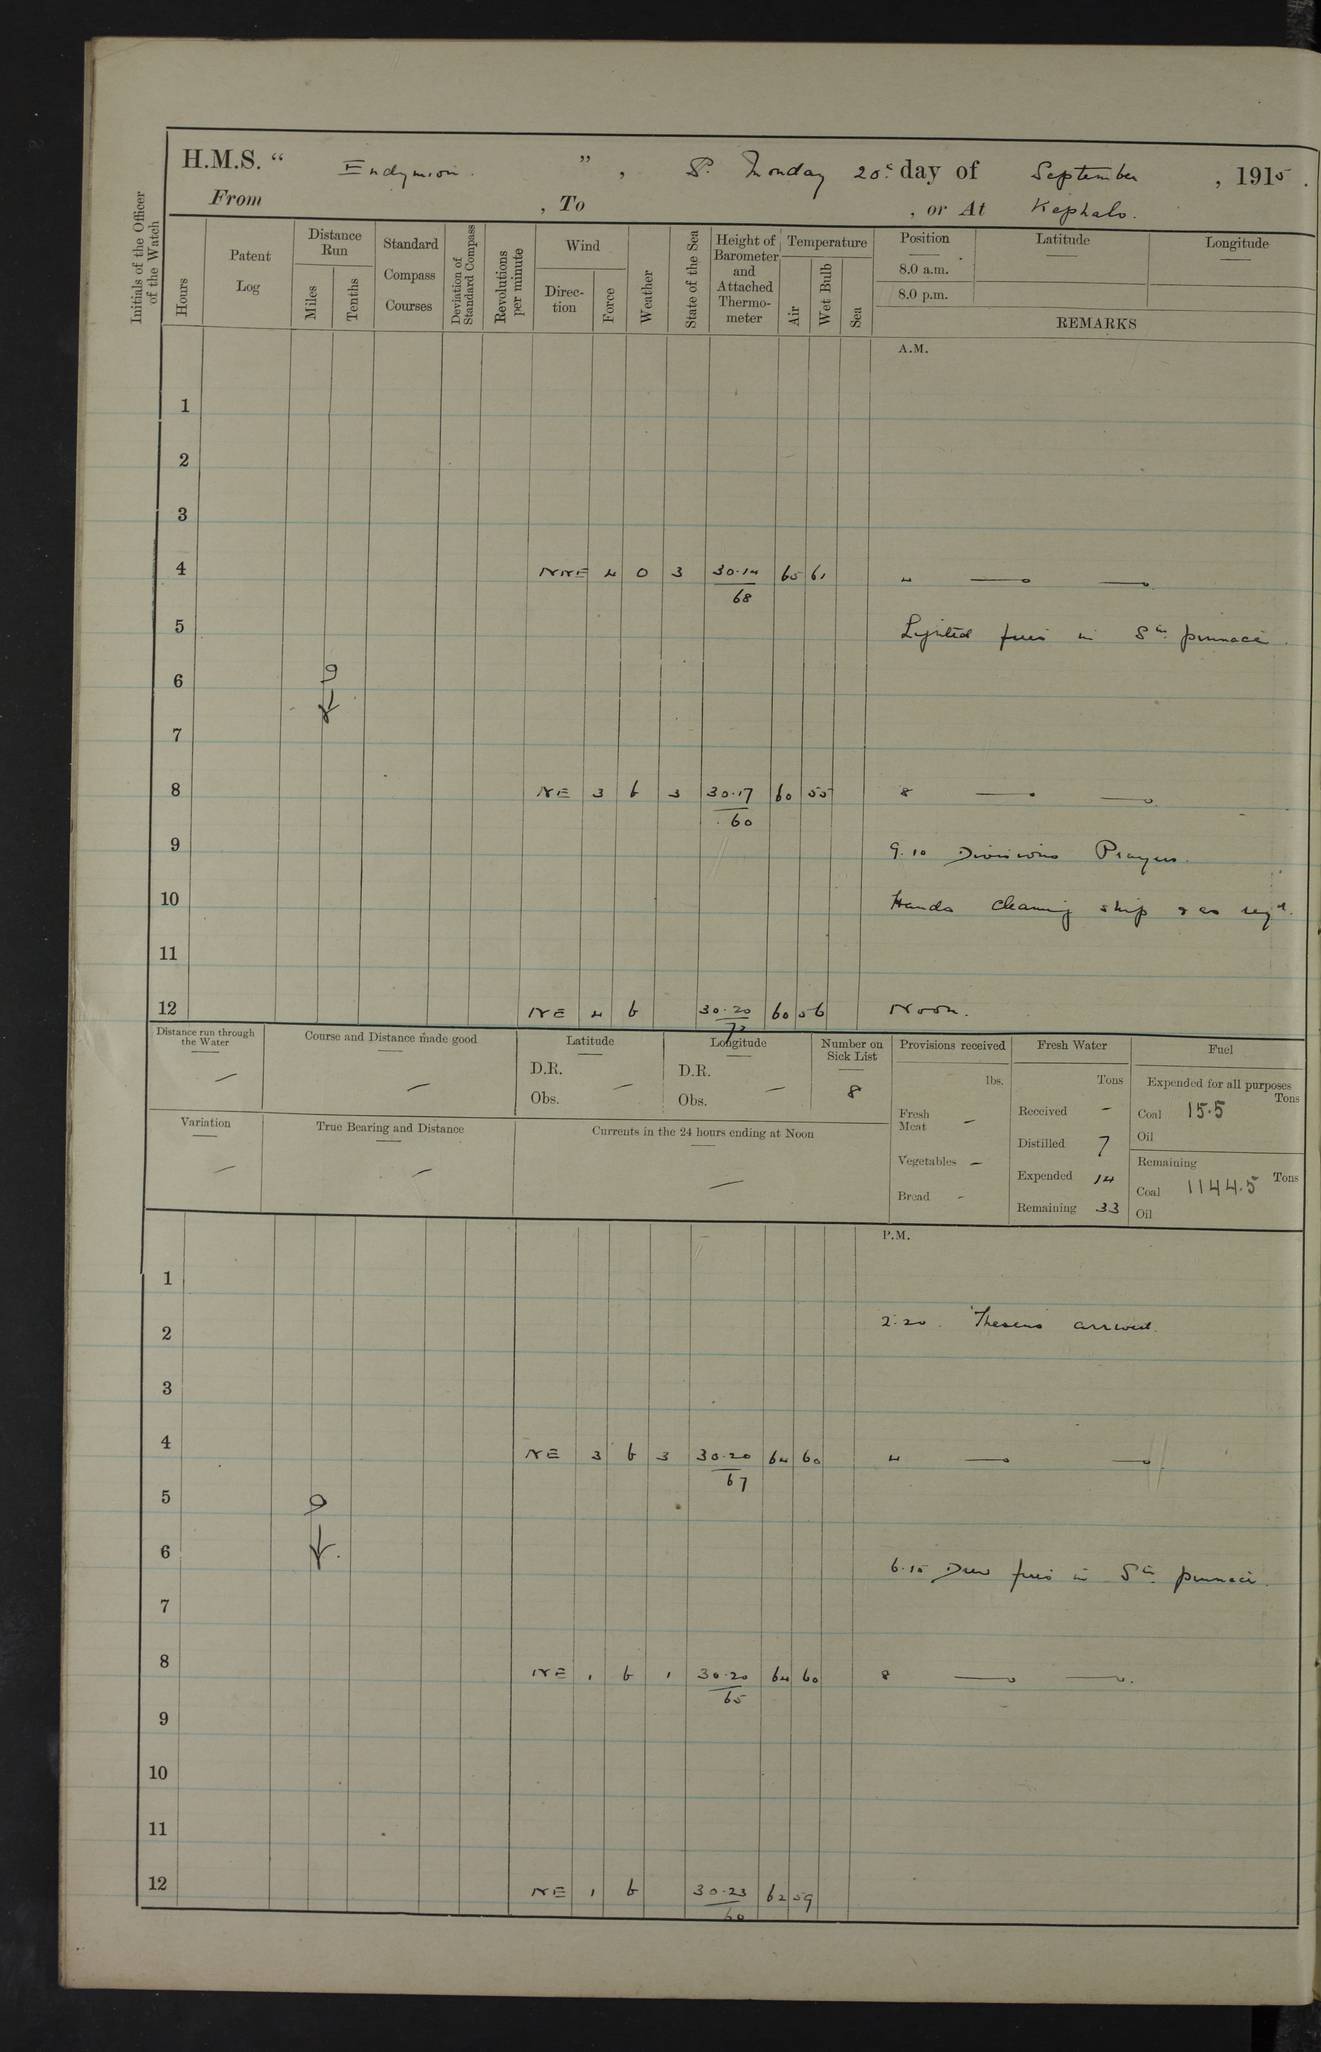 H.M.S. “ Endymion. ”, Monday 20 day of September, 1915.
From , To , or At Kephalo.
Initials of the Officer of the Watch
Hours
Patent Log
Distance Run
Miles
Tenths
Standard Compass Courses
Deviation of Standard Compass
Revolutions per minute
Wind
Direction
Force
Weather
State of the Sea
Height of Barometer and Attached Thermometer
Temperature
Air
Wet Bulb
Sea
Position
8.0 a.m.
8.0 p.m.
Latitude
Longitude
REMARKS
A.M.
1
2
3
4 NNE 4 0 3 30.14 65 61 4
68
5 Lighted fires in Stm pinnace.
6
7
8 NE 3 b 3 30.17 60 55 8
60
9 9.10 Divisions Prayers.
10 Hands cleaning ship & as reqd.
11
12 NE 4 b 30.20 60 56 Noon.
72
Distance run through the Water —
Course and Distance made good —
Latitude
D.R. —
Obs.
Longitude
D.R. —
Obs.
Number on Sick List
8
Provisions received
lbs.
Fresh Meat —
Vegetables —
Bread -
Fresh Water
Tons
Received —
Distilled 7
Expended 14
Remaining 33
Fuel
Expended for all purposes
Tons
Coal 15.5
Oil
Remaining
Tons
Coal 1144.5
Oil
Variation —
True Bearing and Distance —
Currents in the 24 hours ending at Noon —
P.M.
1
2 2.20. Theseus arrived.
3
4 NE 3 b 3 30.20 64 60 4
67
5
6 6.15 Drew fires in Stm pinnace.
7
8 NE 1 b 1 30.20 64 60 8
65
9
10
11
12 NE 1 b 30.23 62 59
60